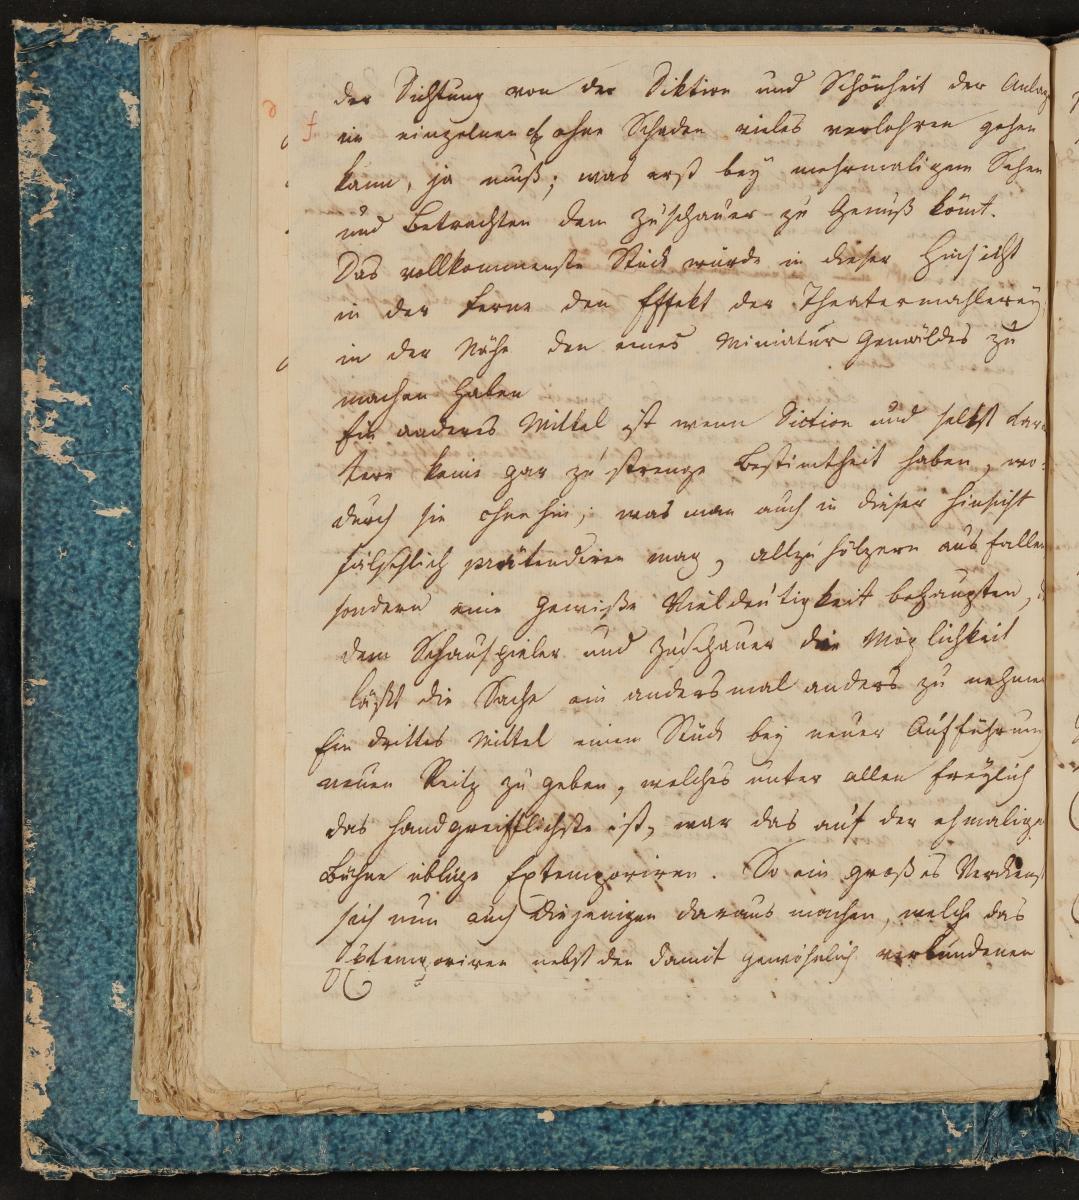 der Dichtung von der Diktion und Schönheit der Anlag
im einzelnen ohne Schaden vieles verlohren gehen
kann, ja muß; was erst bey mehrmaligem Sehen
und Betrachten dem Zuschauer zu Genuß kömt.
Das vollkommenste Stück würde in dieser Hinsicht
in der Ferne den Effekt der Theatermahlerey,
in der Nähe den eines Miniatur Gemäldes zu
machen haben
Ein anderes Mittel ist wenn Diction und selbst Kara
tere keine gar zu strenge Bestimtheit haben, wo-
durch sie ohnehin, was man auch in dieser Hinsicht
fälschlich prätendiren mag, allzu hölzern ausfallen
sondern eine gewiße Vieldeutigkeit behaupten,
dem Schauspieler und Zuschauer die Möglichkeit
läßt die Sache ein andersmal anders zu nehmen
Ein drittes Mittel einem Stück bey neuer Aufführung
neuen Reitz zu geben, welches unter allen freylich
das handgreiflichste ist, war das auf der ehmalige
Bühne übliche Extemporiren. So ein großes Verdienst
sich nun auch diejenigen daraus machen, welche das
Extemporiren nebst den damit gewöhnlich verbundenen